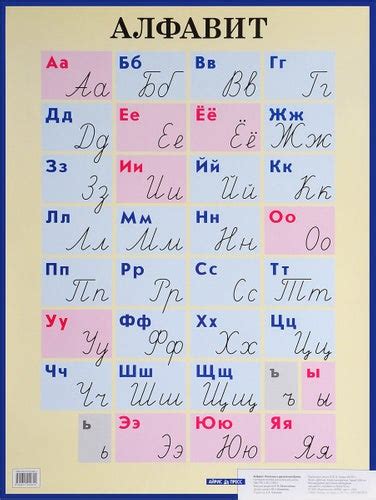 АЛФАВИТ
Аа Бб Вв Гг
Аа Бб Вв Гг
Дд Ее Ёё Жж
Дд Ее Ёё Жж
Зз Ии Йй Кк
Зз Ии Йй Кк
Лл Мм Нн Оо
Лл Мм Нн Оо
Пп Рр Сс Тт
Пп Рр Сс Тт
Уу Фф Хх Цц
Уу Фф Хх Цц
Чч Шш Щщ ъ ы
Чч Шш Щщ ъ ы
ь Ээ Юю Яя
ь Ээ Юю Яя
АЙРИС ПРЕСС